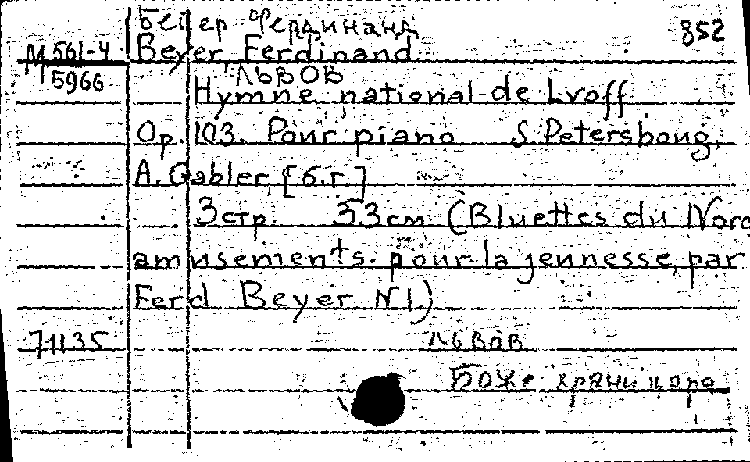 Бейер Фердинанд 852
М 561-4 Beyer, Ferdinand
5966 Львов
Hymne national de Lvoff
Op. 103. Pour piano S. Petersboug,
A. Gabler, [б.г.]
3 стр. 33 см (Bluettes du Nord
amusements. pour la jennesse, par
Ferd Beyer N 1.)
71135 Львов
Боже храни царя